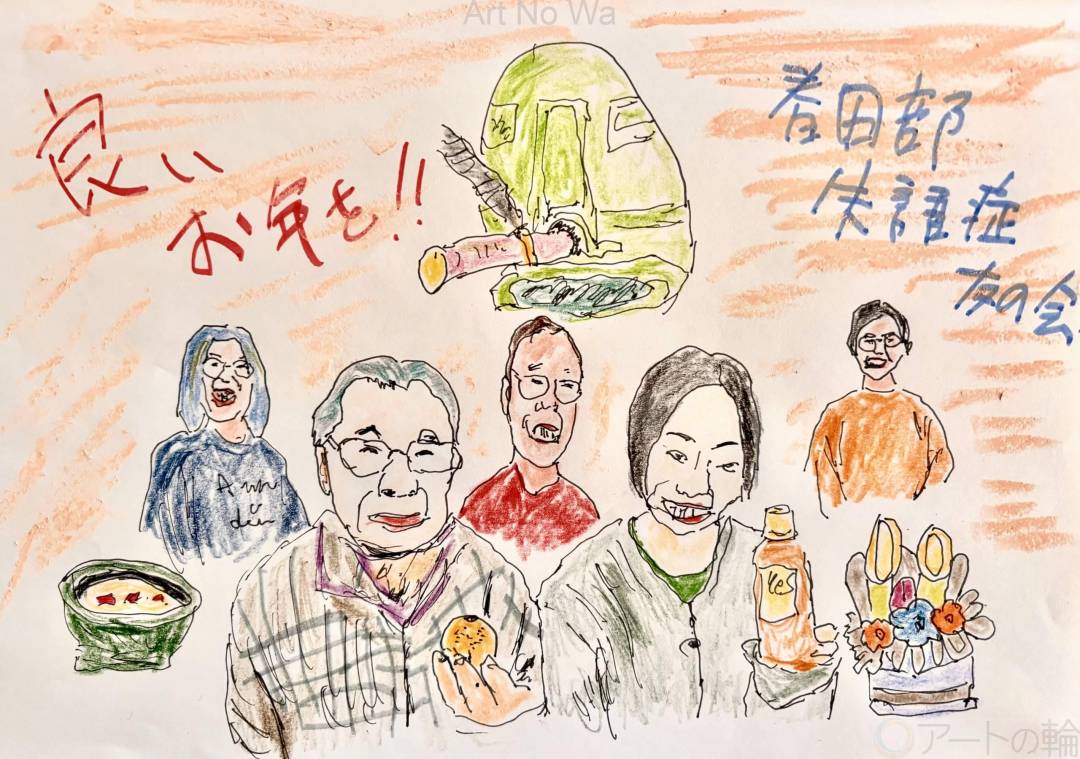 Art No Wa
良い
お年を!!
春田部
失語症
友の会
アートの輪